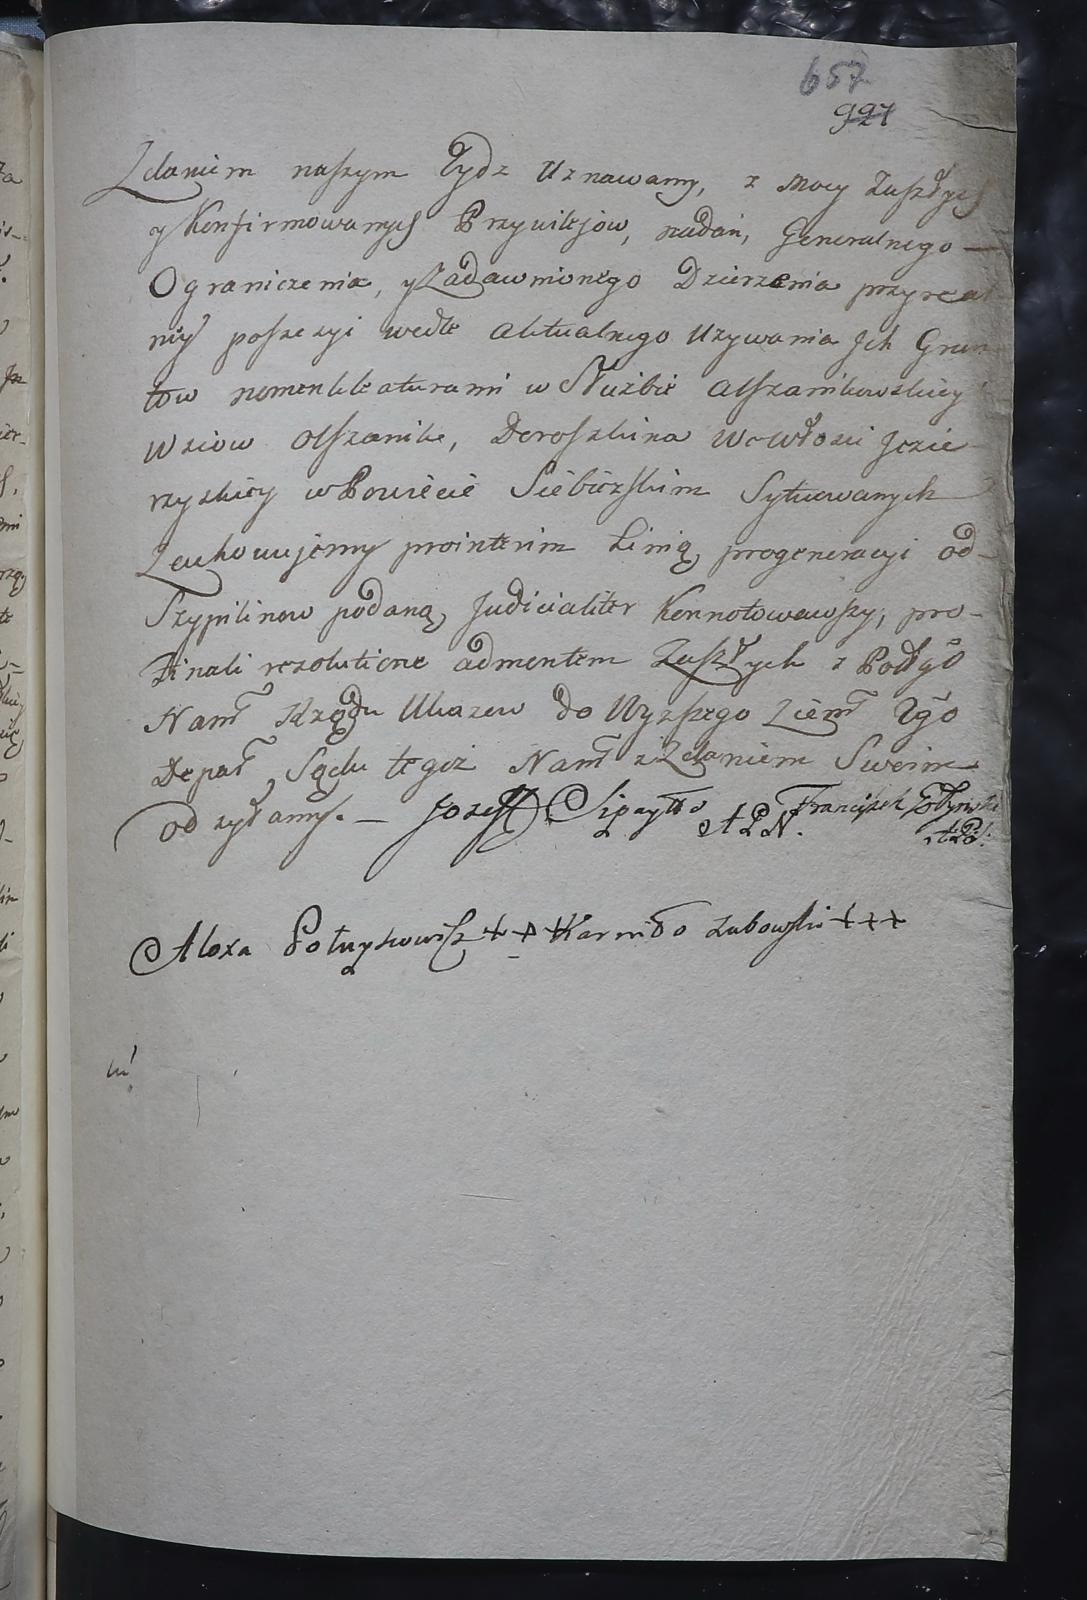 657
927
Zdaniem naszym Tydz Uznawamy, z Mocy Zaszłych
y Konfirmowanych Przywilejów, nadań, Generalnego —
Ograniczenia, y Zadawnionego Dzierzenia przy real
ney possessyi wedle aktualnego Używania Jch Grun
tow nomenklaturami w Służbie Olszanikowskiey
Wsiow Olszanik, Doroszkina we Włości Jezie
rzyskiey w Powiecie Siebiezskim Sytuowanych
Zachowujemy prointerim Linią progeneracyi od
Szypilinow podaną Judicialiter Konnotowawszy, pro
Finali rezolutione admentem Zaszłych z Podłgo
Nam Rządu Ukazow do Wyższego Ziem Igo
Depar Sądu tegoż Nam z Zdaniem Swoim
Odsyłamy. — Jozeff Sipayłło APN. Franciszek
Alexa +++ Karniło Zubowski +++